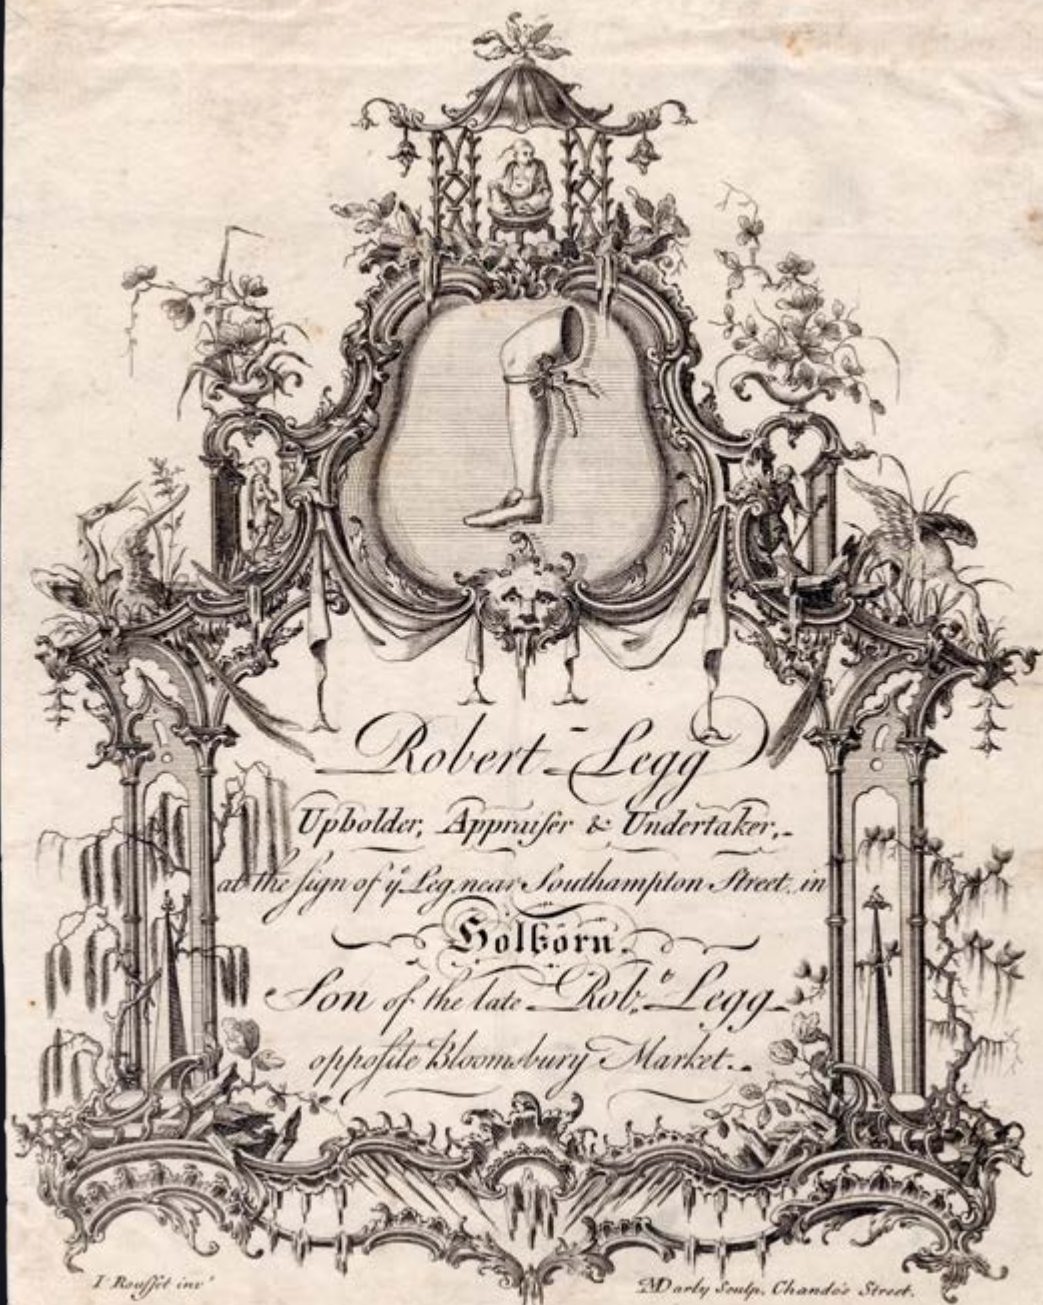 Robert Legg
Upholder, Appraiſer & Undertaker,
at the ſign of yͤ Leg, near Southampton Street, in
Holborn.
Son of the late Robᵗ. Legg
oppoſite Bloomsbury Market.
I. Rouſſet invᵗ
MDarly Sculp. Chando's Street.